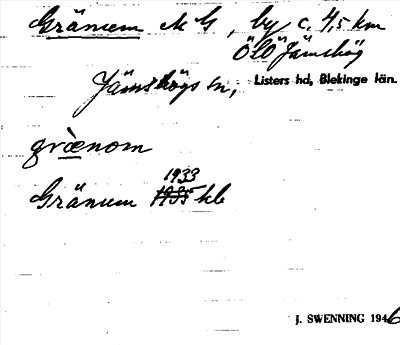 Gränum M G, by c. 4,5 km
ÖLO Jämshög
Jämshögs sn, Listers hd, Blekinge län.
græ̀nom
1933
Gränum 1935 kb
J. SWENNING 1946